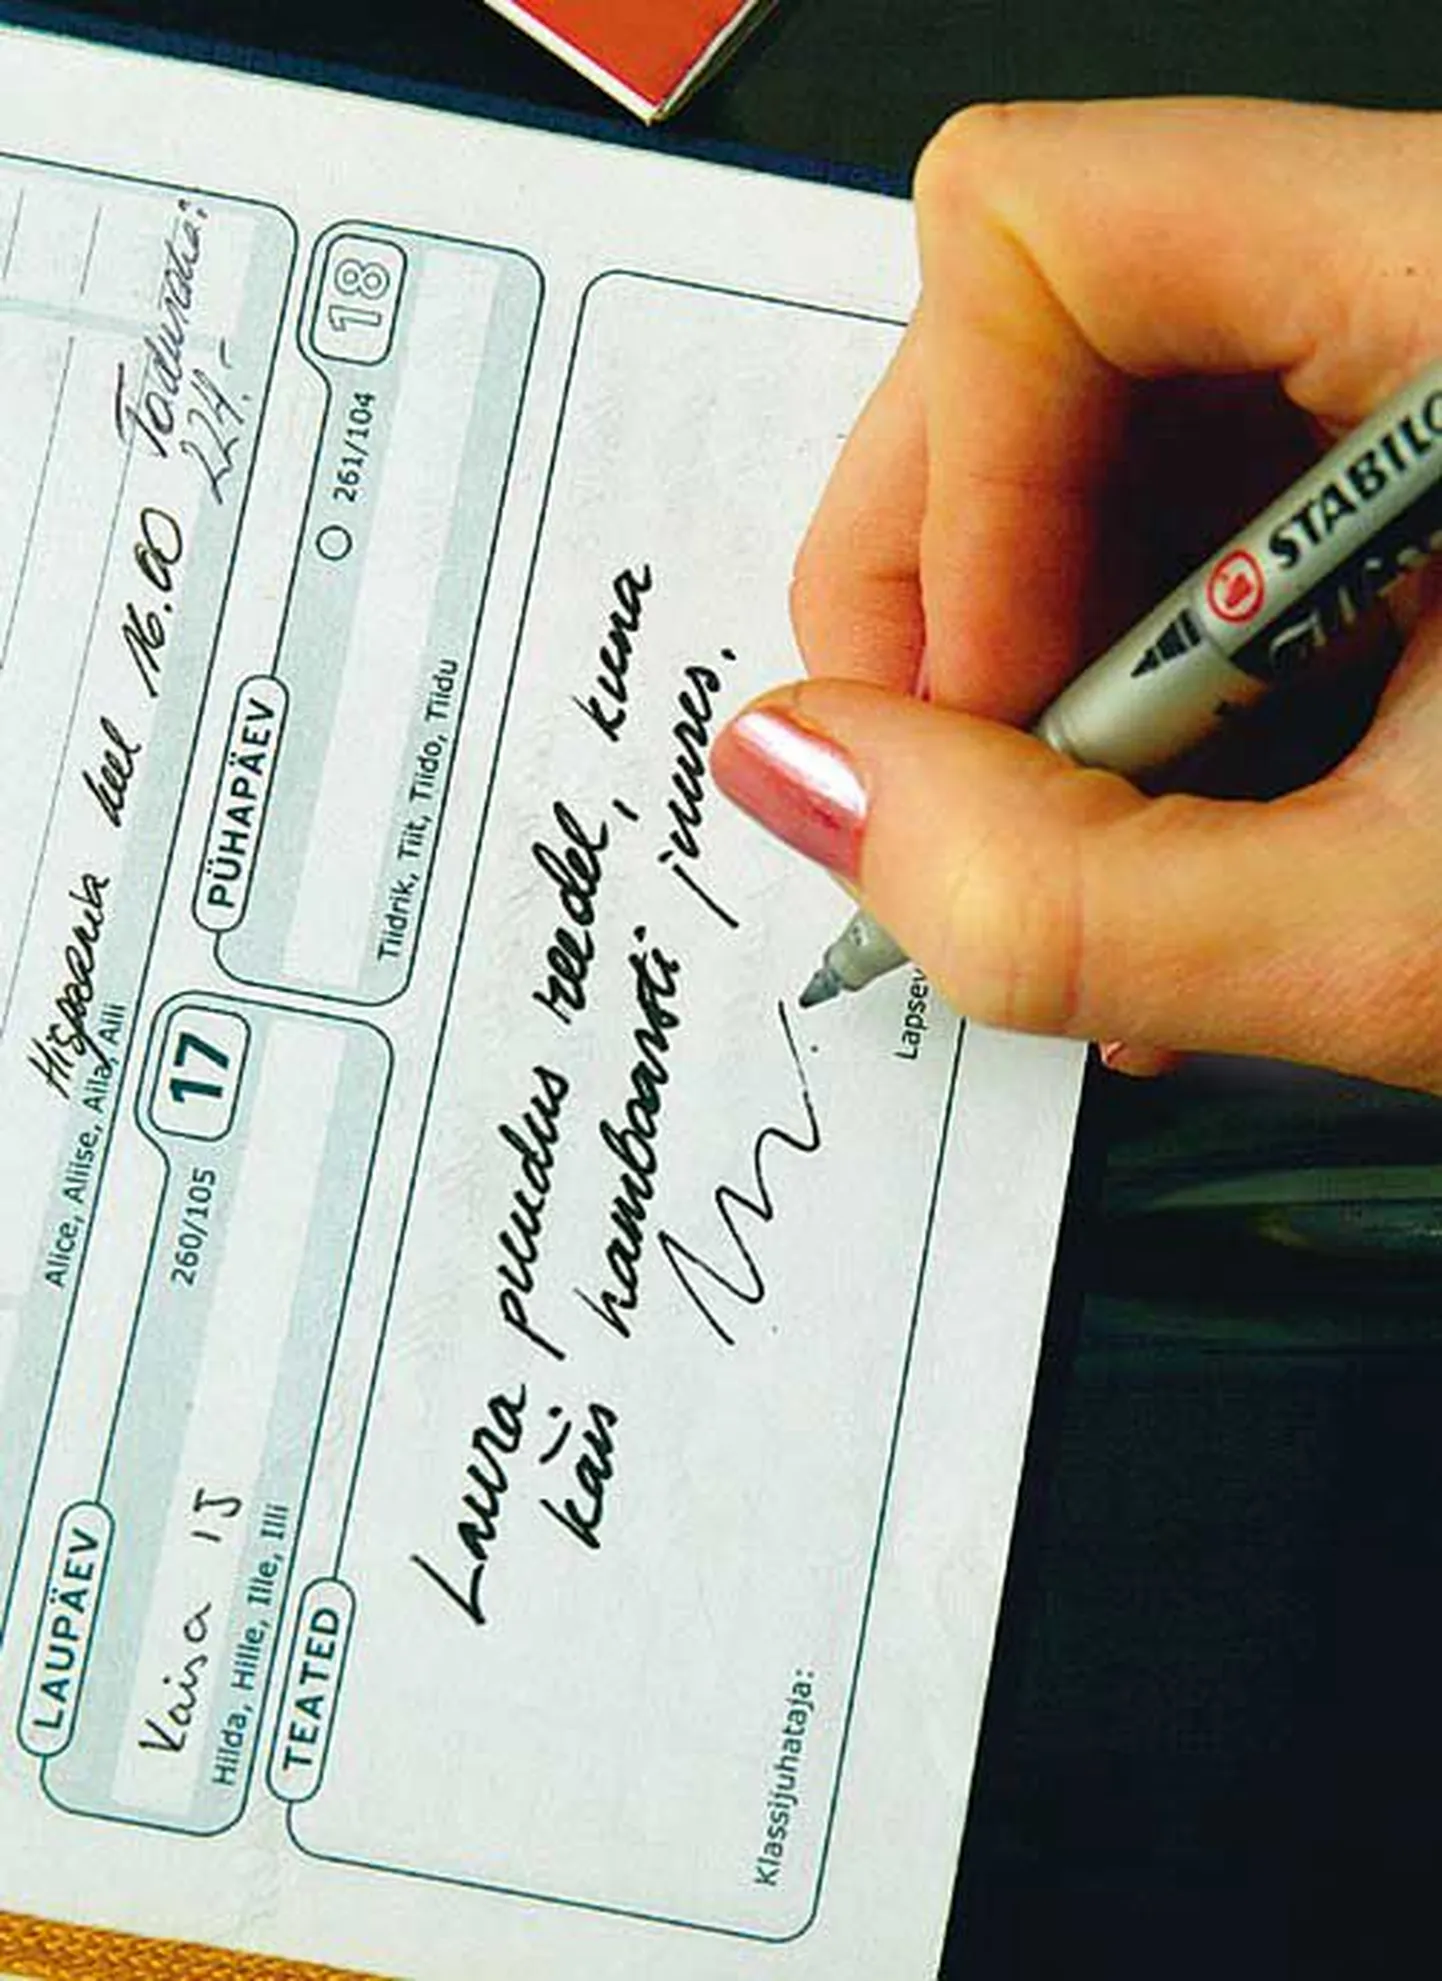 Hispaania keel 16.00
224.-
Alice, Aliise, Aila, Alli
LAUPÄEV
260/105
17
Kaisa 15
Hilda, Hille, Ille, Illi
PÜHAPÄEV
261/104
18
Tiidrik, Tiit, Tiido, Tiidu
TEATED
Laura puudus reedel, kuna
käis hambaarsti juures.
Klassijuhataja:
Lapsev
STABILO